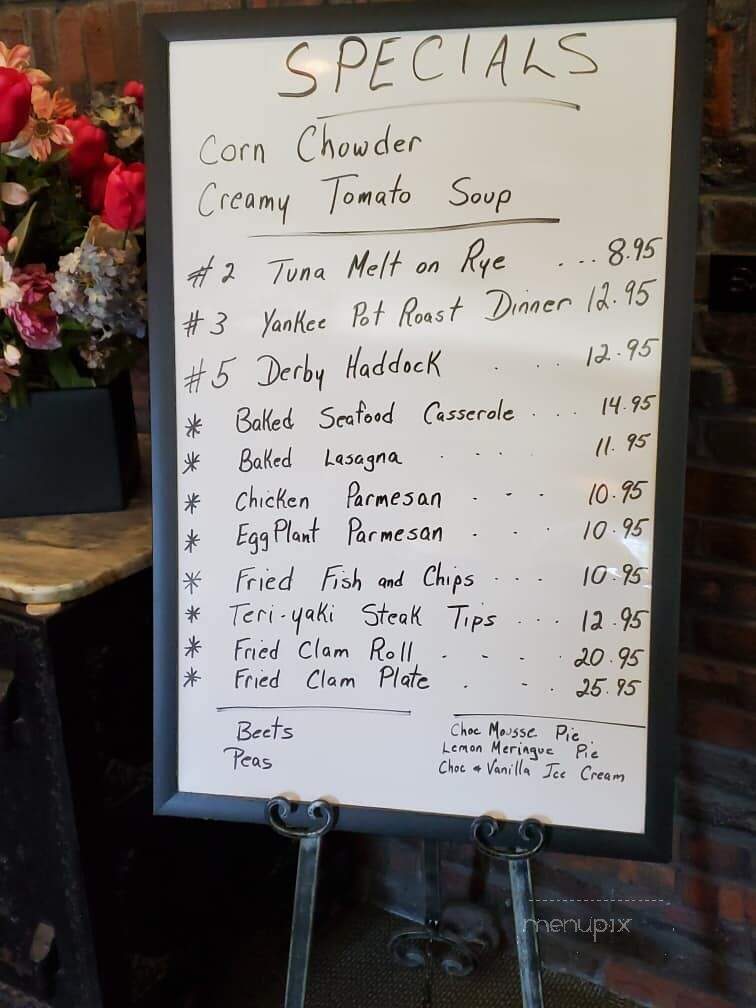 SPECIALS
Corn Chowder
Creamy Tomato Soup
#2 Tuna Melt on Rye ... 8.95
#3 Yankee Pot Roast Dinner 12.95
#5 Derby Haddock . . . 12.95
* Baked Seafood Casserole . . . 14.95
* Baked Lasagna . . . . 11.95
* Chicken Parmesan . - . 10.95
* EggPlant Parmesan . . . 10.95
* Fried Fish and Chips . . . 10.95
* Teri-yaki Steak Tips ... 12.95
* Fried Clam Roll . - - . 20.95
* Fried Clam Plate . - . 25.95
Beets
Peas
Choc Mousse Pie
Lemon Meringue Pie
Choc & Vanilla Ice Cream
menupix